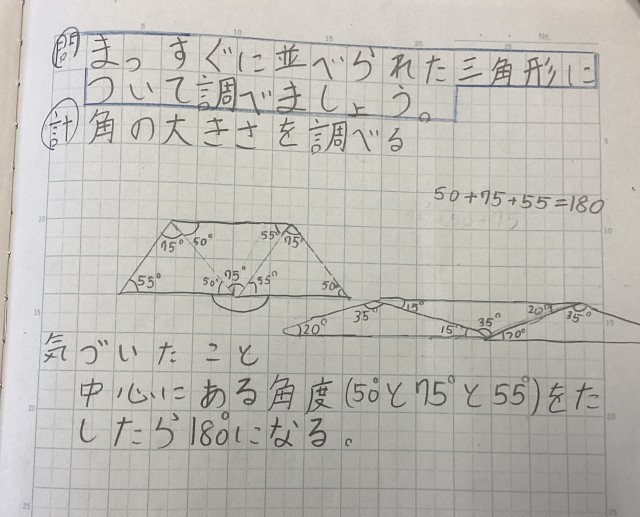 問 まっすぐに並べられた三角形に
ついて調べましょう。
計 角の大きさを調べる
50+75+55=180
75° 50° 55° 75°
55° 50° 75° 55° 50°
35° 15° 20° 35°
20° 15° 35° 20°
気づいたこと
中心にある角度(50°と75°と55°)をた
したら180°になる。